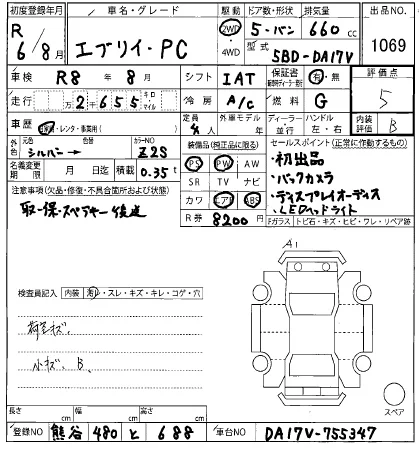 初度登録年月 車名・グレード 駆動 ドア数・形状 排気量 出品NO.
R 6/8月 エブリイ・PC 2WD ・4WD 5・バン 660cc 1069
型式 5BD-DA17V
車検 R8年8月 シフト IAT 保証書 有・無 評価点
走行 万2千655 キロ マイル 冷房 A/C 燃料 G 5
車歴 自家用・レンタ・事業用( ) 定員 4人 ディーラー 並行 ハンドル 左・右 内装 B
外色 元色 シルバー→ 色 カラーNO Z2S 装備品(純正品に限る) セールスポイント(正常に作動するもの)
名義変更期限 月 日迄 積載 0.35t PS PW AW ・初出品
注意事項(欠品・修復・不具合箇所および状態) SR TV ナビ ・バックカメラ
取・保・スペアキー後送 カワ エアB ABS ・ディスプレイオーディオ
・LEDヘッドライト
R券 8200円 Fガラス トビ石・キズ・ヒビ・ワレ・リペア跡
A1
検査員記入 内装 ・スレ・キズ・キレ・コゲ・穴
荷室キズ、
小キズ、B
スペア
長さ cm 幅 cm 高さ cm
登録NO 熊谷 480 と 688 車台NO DA17V-755347